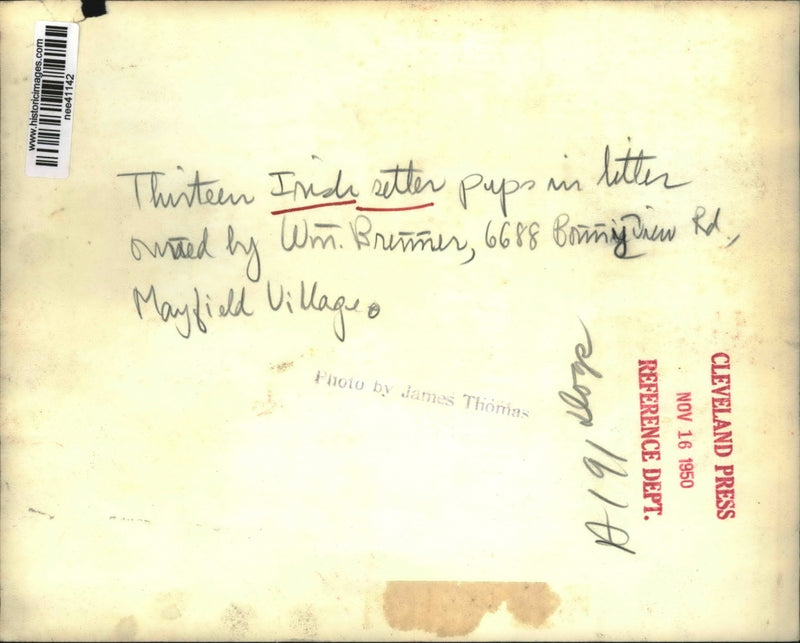 www.historicimages.com
nee41142
Thirteen Irish setter pups in litter
owned by Wm. Brenner, 6688 Bonny View Rd,
Mayfield Village.
Photo by James Thomas
A191 Dogs
CLEVELAND PRESS
NOV 16 1950
REFERENCE DEPT.